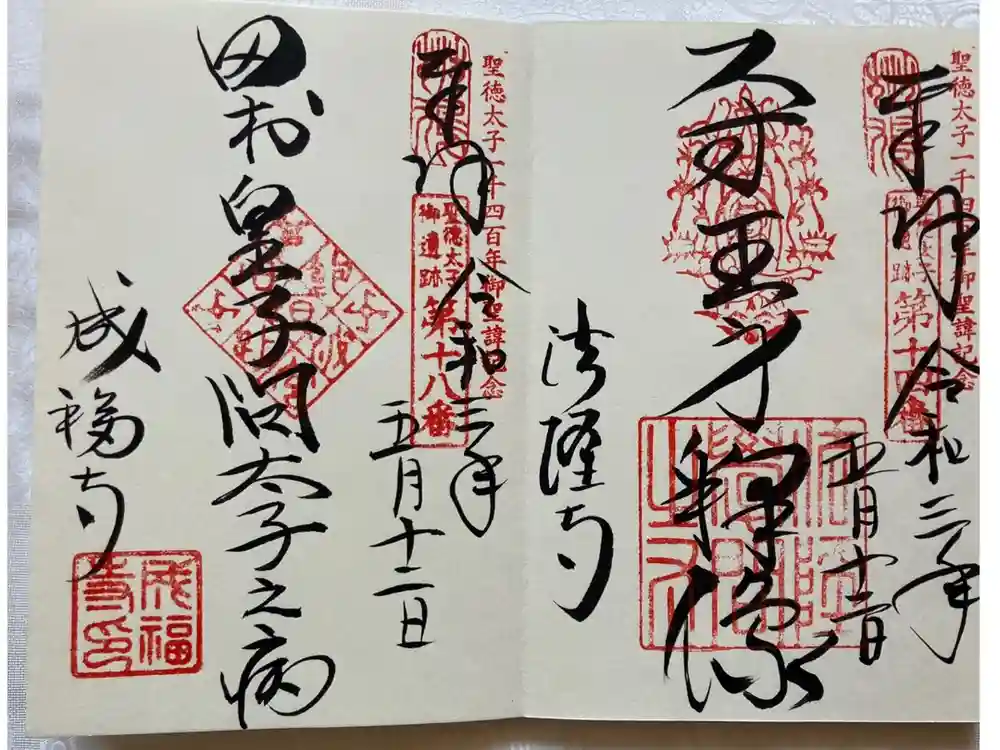 聖徳太子一千四百年御聖諱記念
奉拝
聖徳太子
御遺跡
第十四番
令和三年
五月十二日
尺寸王身釋像
法隆寺
聖徳太子一千四百年御聖諱記念
奉拝
聖徳太子
御遺跡
第十八番
令和三年
五月十二日
田村皇子問太子之病
成福寺
成福
寺印